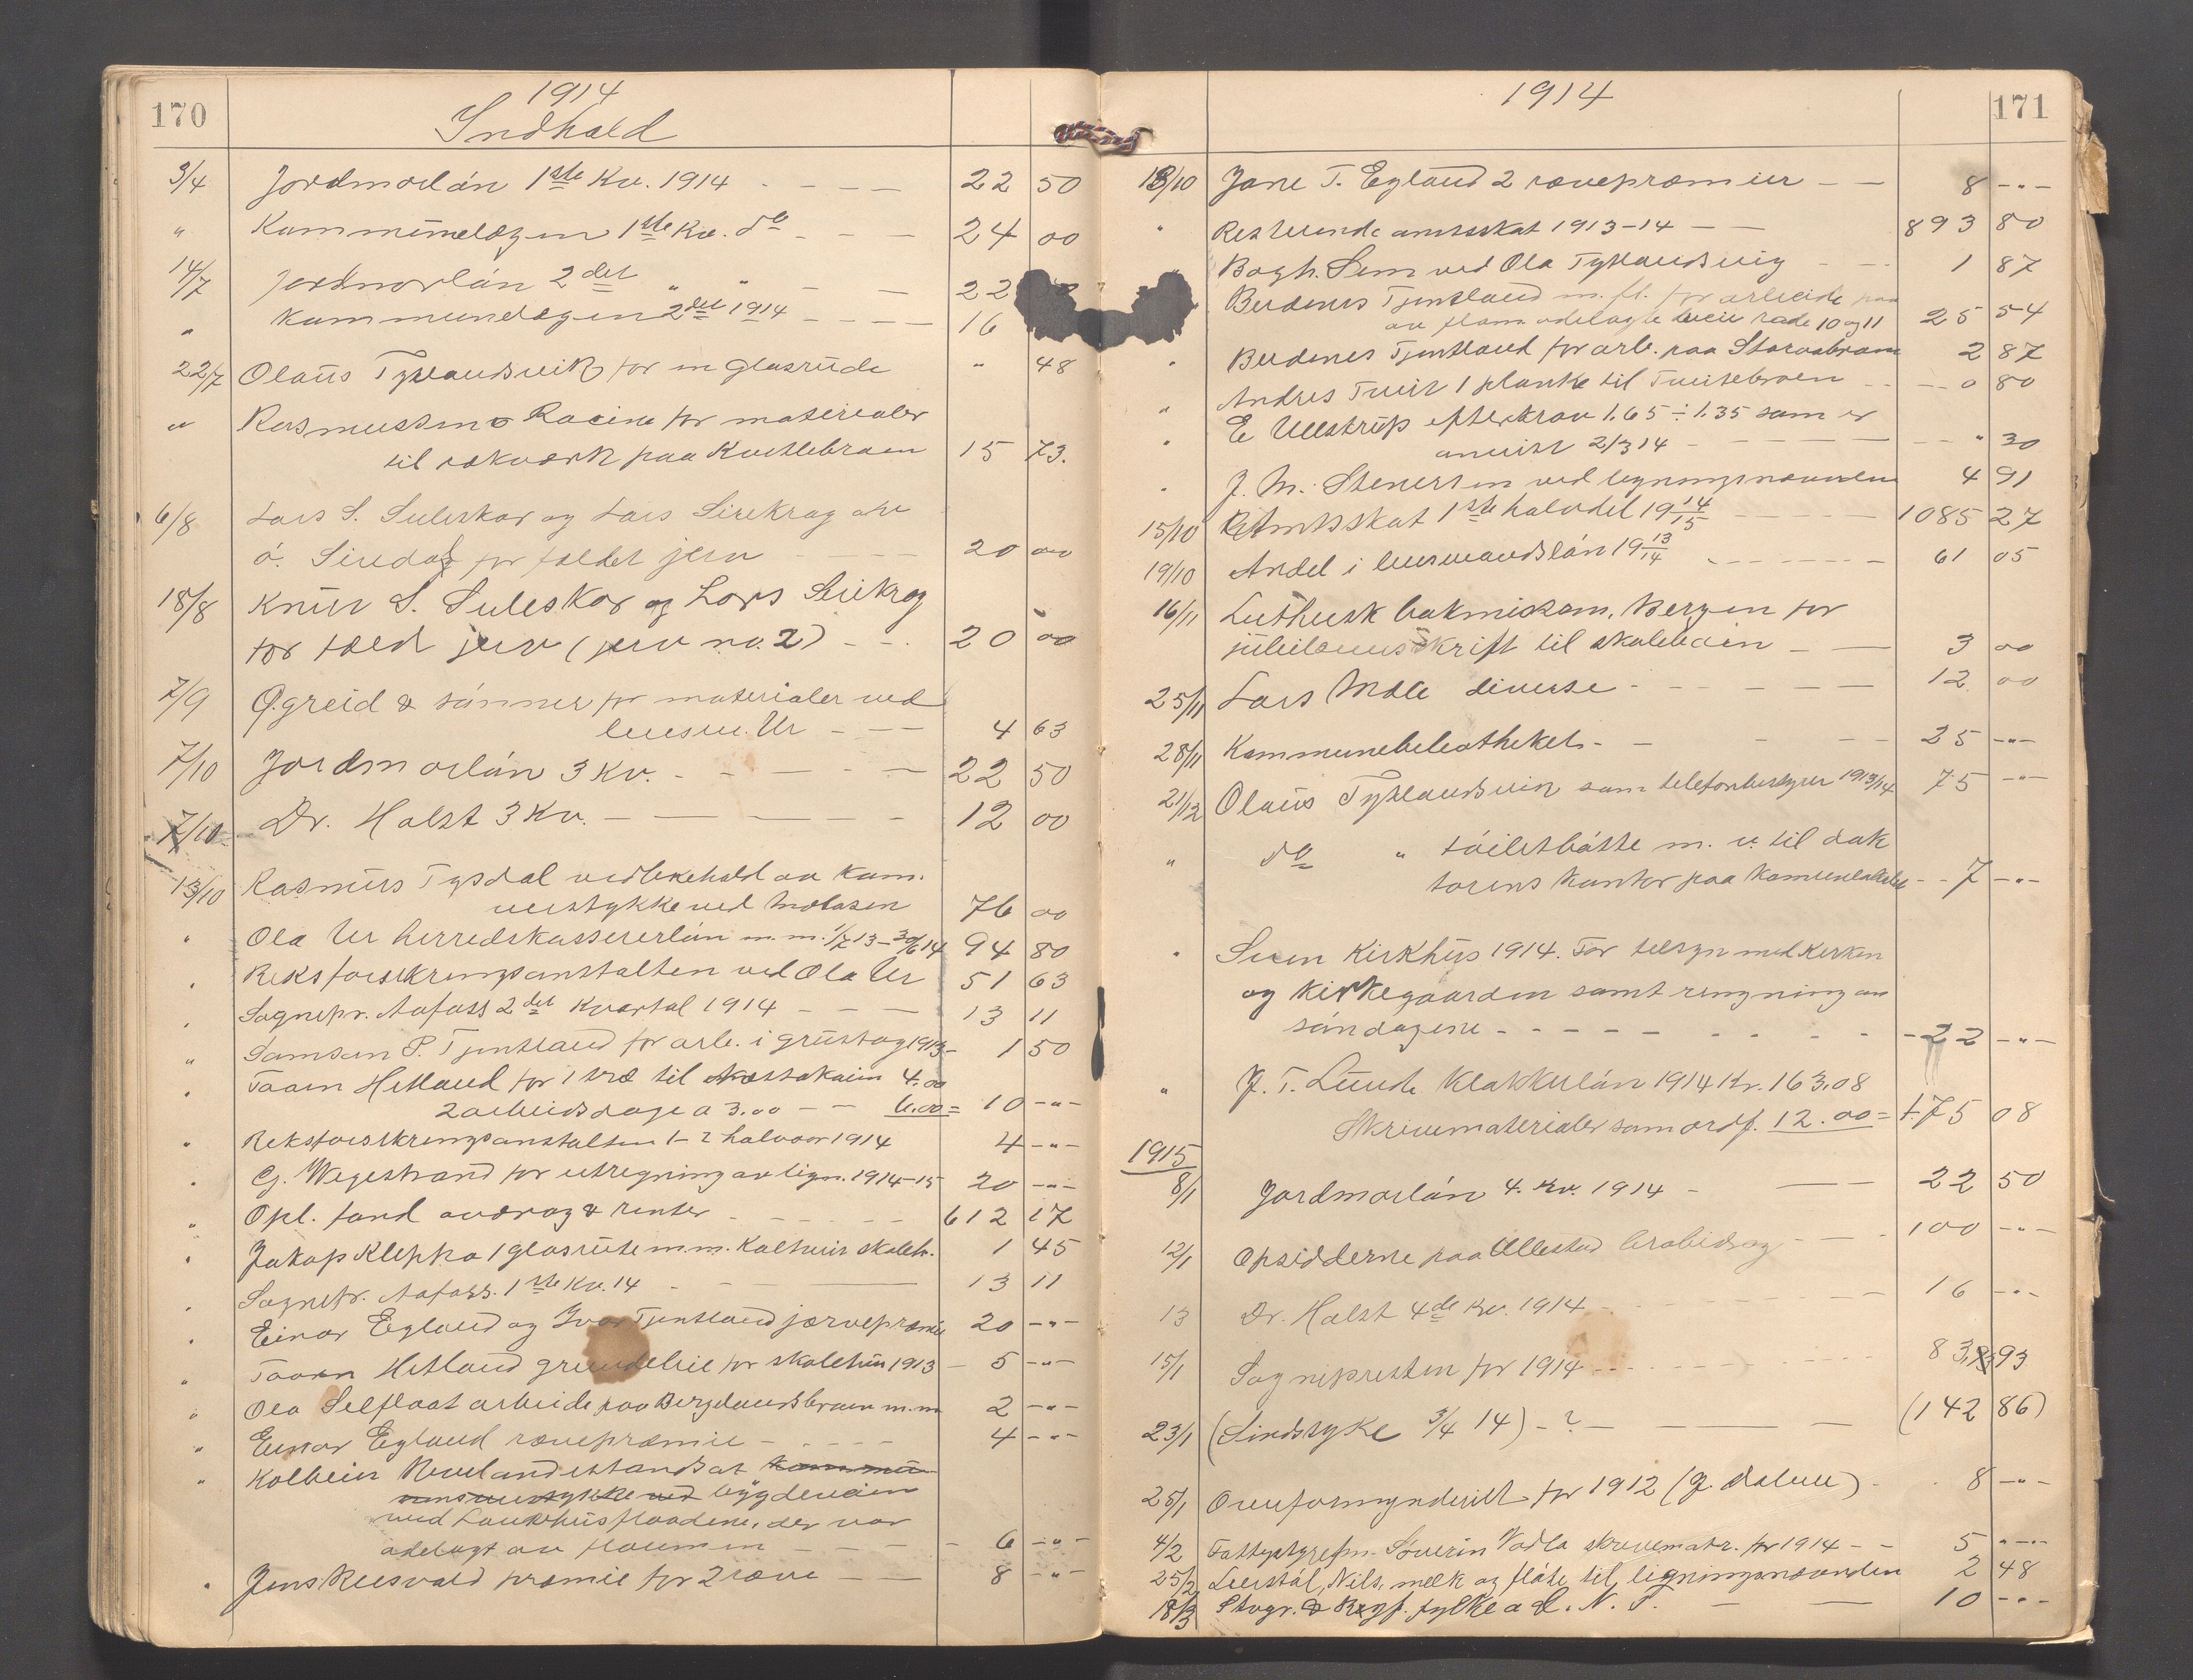 170
1914
Indhald
3/4 Jordmorlön 1ste Kv. 1914 22 50
" Kommunelægen 1ste Kv. do 24 00
14/7 Jordmorlön 2det " " 22
" Kommunelægen 2det 1914 16
22/7 Olaus Tyslandsvik for en glasrude " 48
" Rasmussen & Racine for materialer
til rækværk paa Kvitlebroen 15 73.
6/8 Lars S. Suleskar og Lars Sirekrag av
ö. Siredal for fældet jerv 20 00
18/8 Knut S. Suleskar og Lars Sirekrag
for fæld jerv (jerv no. 2) 20 00
7/9 Ögreid & sönner for materialer ved
lensm. Ur 4 63
7/10 Jordmorlön 3 Kv. 22 50
7/10 Dr. Halst 3 Kv. 12 00
13/10 Rasmus Tysdal vedlikehald av kom.
veistykke ved Molaasen 76 00
" Ola Ur herredskassererlön m.m. 1/7 13 - 30/6 14 94 80
" Riksforsikringsanstalten ved Ola Ur 51 63
" Sognepr. Aafoss 2det Kvartal 1914 13 11
" Samson P. Tjentland for arb. i grustag 1913 1 50
" Taarn Hetland for 1 træ til 4.00
2 arbeidsdage a 3.00 - - 6.00 = 10 -"-
" Riksforsikringsanstalten 1-2 halvaar 1914 4 -"-
" G. Wegestrand for utregning av lign. 1914-15 20 -"-
" Opl. fond avdrag & renter 612 17
" Jakop Kleppa 1 glasrute m.m. skoleh. 1 45
" Sognepr. Aafoss. 1ste Kv. 14 13 11
" Einar Egland og Ivar Tjentland jærvepræmie 20 -"-
" Taarn Hetland grundleie for skolehus 1913 5 -"-
" Ola Selflaat arbeide paa Bergelandsbroen m.m 2 -"-
" Einar Egland rævepræmie 4 -"-
" Kolbein Nevland istandsat
bygdeveien
ved Laukhusflaadene, der var
ödelagt av flaumen 6 -"-
" Jens Reesvald præmie for 2 ræve 8 -"-
171
1914
13/10 Jane T. Egland 2 rævepræmier 8 -"-
" Resterende amtsskat 1913-14 893 80
Bogh. Sem ved Ola Tyslandsvig 1 87
Berdines Tjentland m. fl. for arbeide paa
av flom ödelagte veie rode 10 og 11 25 54
" Berdines Tjentland for arb. paa 2 87
" Andres Tveit 1 planke til Tveitebroen 0 80
" E Ullstrup efterkrav 1.65 ÷ 1.35 som er
anvist 2/3 14 " 30
" J. M. Stenersen ved ligningsnævnden 4 91
15/10 Amtsskat 1ste halvdel 19 14/15 1085 27
19/10 Andel i lensmandslön 19 13/14 61 05
16/11 Luthersk Bergen for
jubileumsskrift til skoleboien 3 00
25/11 Lars Mæle diverse 12 00
28/11 Kommunebibliotheket 25 -"-
21/12 Olaus Tyslandsvik som telefonbestyrer 1913/14 75 -"-
" do " toiletbötte m. v. til dok
torens kontor paa komunelokalet 7 -"-
" Sven Kirkhus 1914. For tilsyn med kirken
og kirkegaarden samt ringning om
söndagene 22 -"-
" J. T. Lunde Klokkerlön 1914 Kr. 163.08
Skrivematerialer som ordf. 12.00 = 175 08
1915
8/1 Jordmorlön 4. Kv. 1914 22 50
12/1 Opsidderne paa Ullestad brobidrag 100 -"-
13 Dr. Halst 4de Kv. 1914 16 -"-
15/1 Sognepresten for 1914 83 93
23/1 (Sindssyke 3/4 14) - ? (142 86)
25/1 Overformynderiet for 1912 (g. dalere) 8 -"-
4/2 Fattigstyrefm. Severin Vadla skrivematr. for 1914 5 -"-
25/2 Nils, melk og flöte til ligningsnævnden 2 48
18/3 Stvgr. & Regf. fylke a D. N. T. 10 -"-